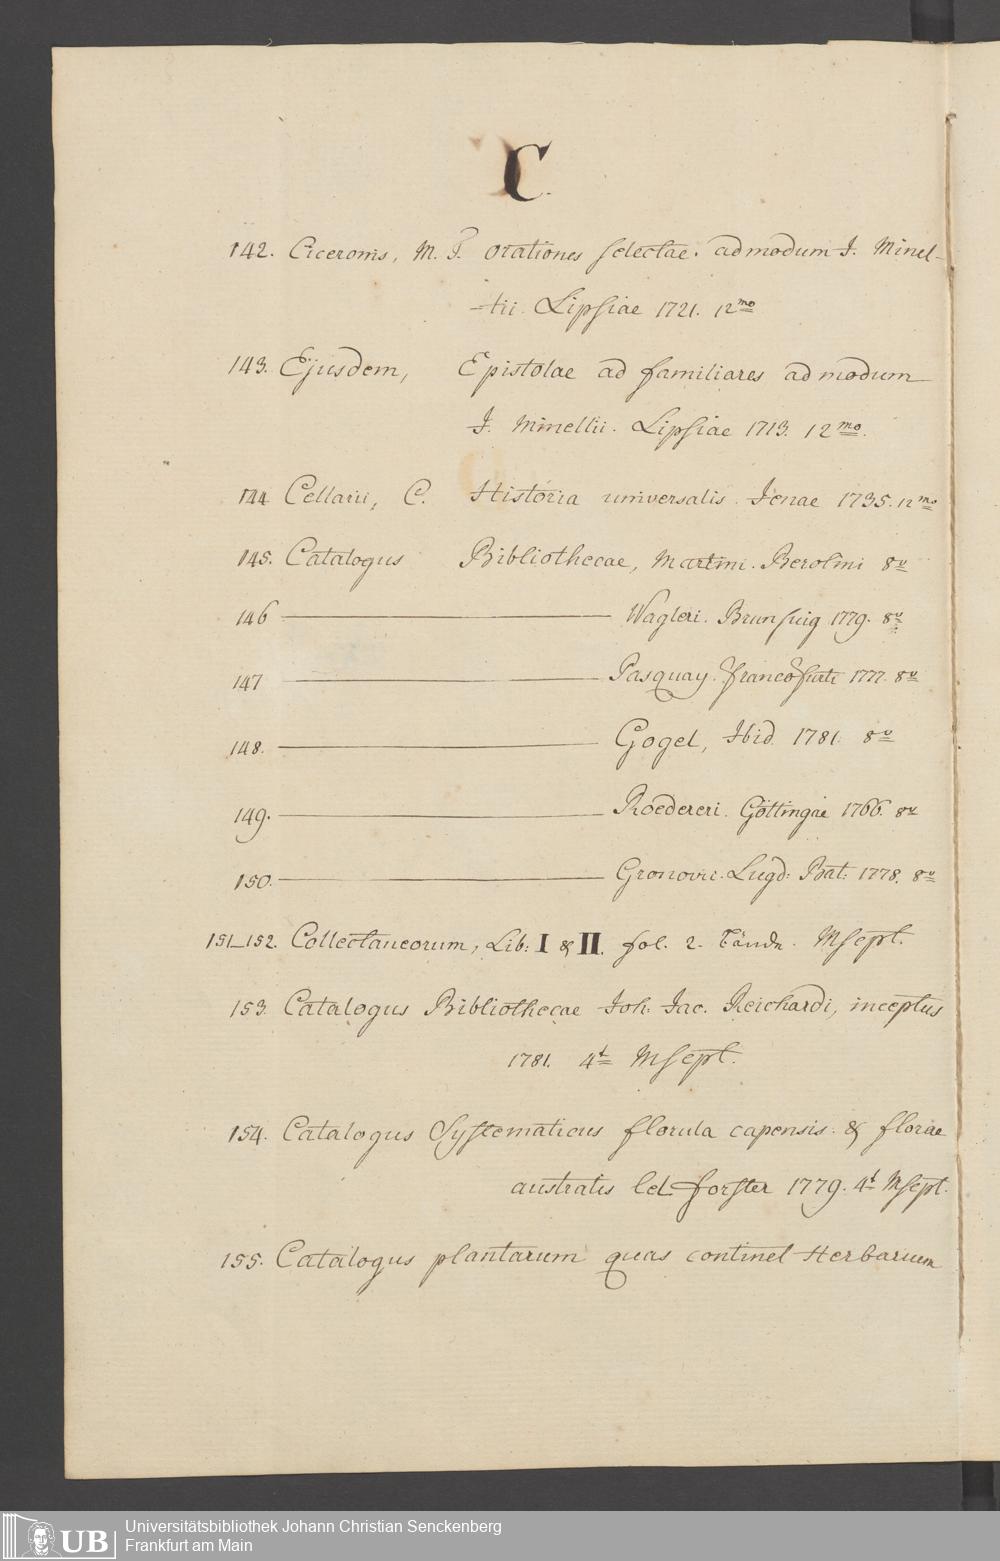 C.
142. Ciceronis, M. T. orationes selectae. ad modum J. Minel-
-lii. Lipsiae 1721. 12mo
143. Ejusdem, Epistolae ad familiares ad modum
J. Minellii. Lipsiae 1713. 12mo.
144 Cellarii, C. Historia universalis. Jenae 1735. 12mo
145. Catalogus Bibliothecae, Martini. Berolini 8v
146 ——— Wagleri. Brunsuig 1779. 8v
147 ——— Pasquay. Francofurti 1777. 8v
148. ——— Gogel, Ibid. 1781. 8v
149. ——— Roedereri. Göttingae 1766. 8v
150. ——— Gronovii. Lugd: Bat: 1778. 8v
151–152. Collectaneorum, Lib: I & II. fol. 2. Bände. Mscpt.
153. Catalogus Bibliothecae Joh. Jac. Reichardi, inceptus
1781. 4t Mscpt.
154. Catalogus Systematicus florula capensis & florae
australis Forster 1779. 4t Mscpt.
155. Catalogus plantarum quas continet Herbarium
UB
Universitätsbibliothek Johann Christian Senckenberg
Frankfurt am Main